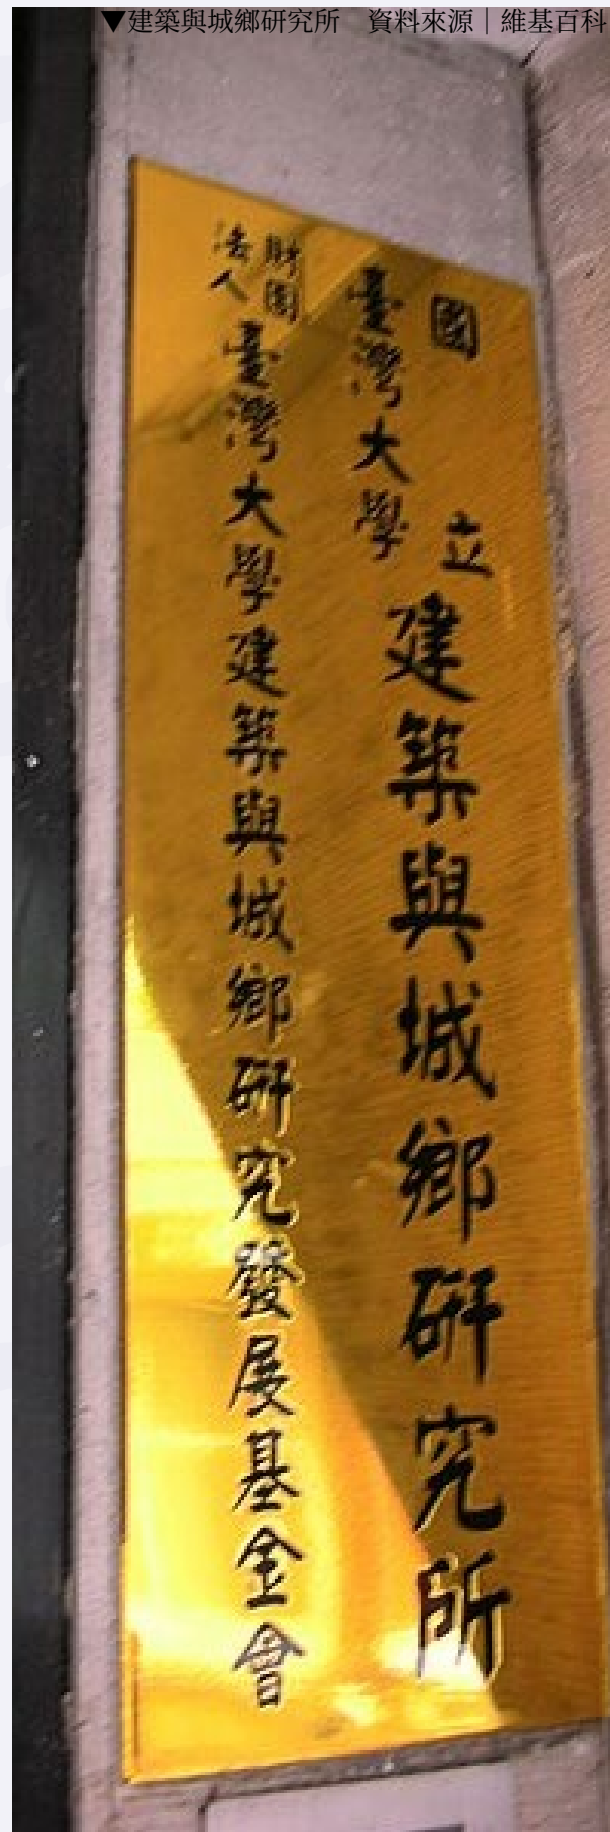 ▼建築與城鄉研究所　資料來源｜維基百科
國立臺灣大學建築與城鄉研究所
財團法人臺灣大學建築與城鄉研究發展基金會